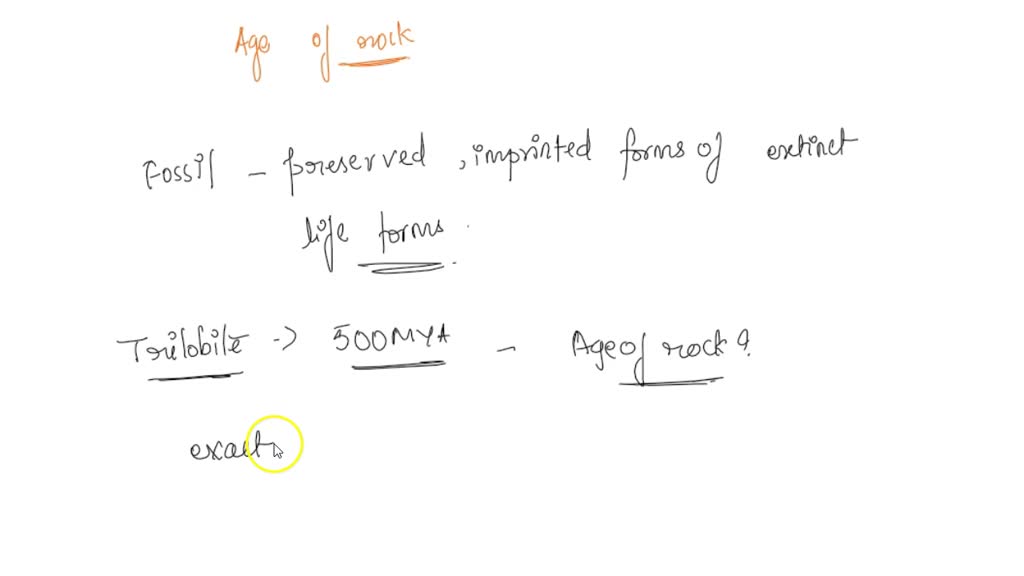 Age of rock
Fossil - preserved, imprinted forms of extinct
life forms.
Trilobite -> 500MYA - Age of rock?
exact